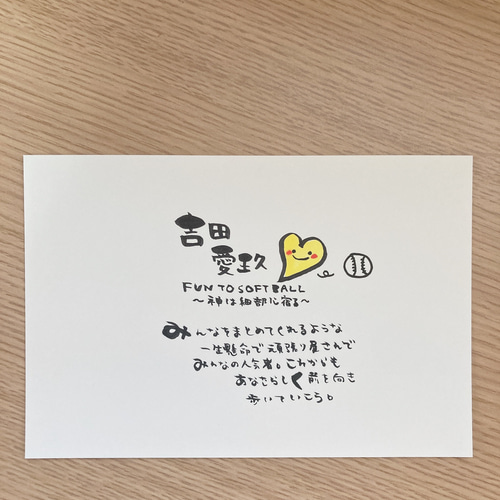 吉田
愛玖
FUN TO SOFTBALL
～神は細部に宿る～
みんなをまとめてくれるような
一生懸命で頑張り屋さんで
みんなの人気者。これからも
あなたらしく前を向き
歩いていこう。